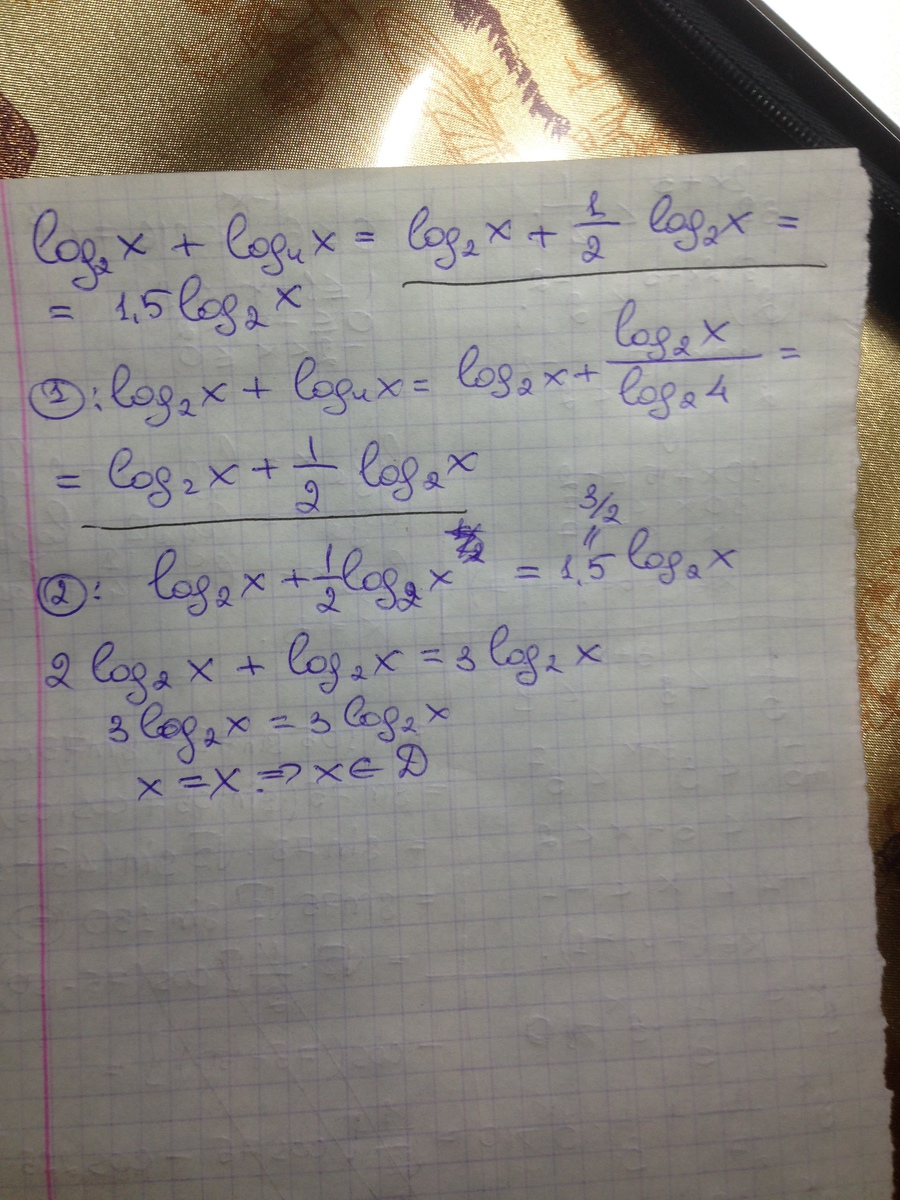 log₂x + log₄x = log₂x + 1/2 log₂x =
= 1,5 log₂x
①: log₂x + log₄x = log₂x + log₂x / log₂4 =
= log₂x + 1/2 log₂x
②: log₂x + 1/2 log₂x = 1,5 log₂x
3/2
"
2 log₂x + log₂x = 3 log₂x
3 log₂x = 3 log₂x
x = x => x ∈ D